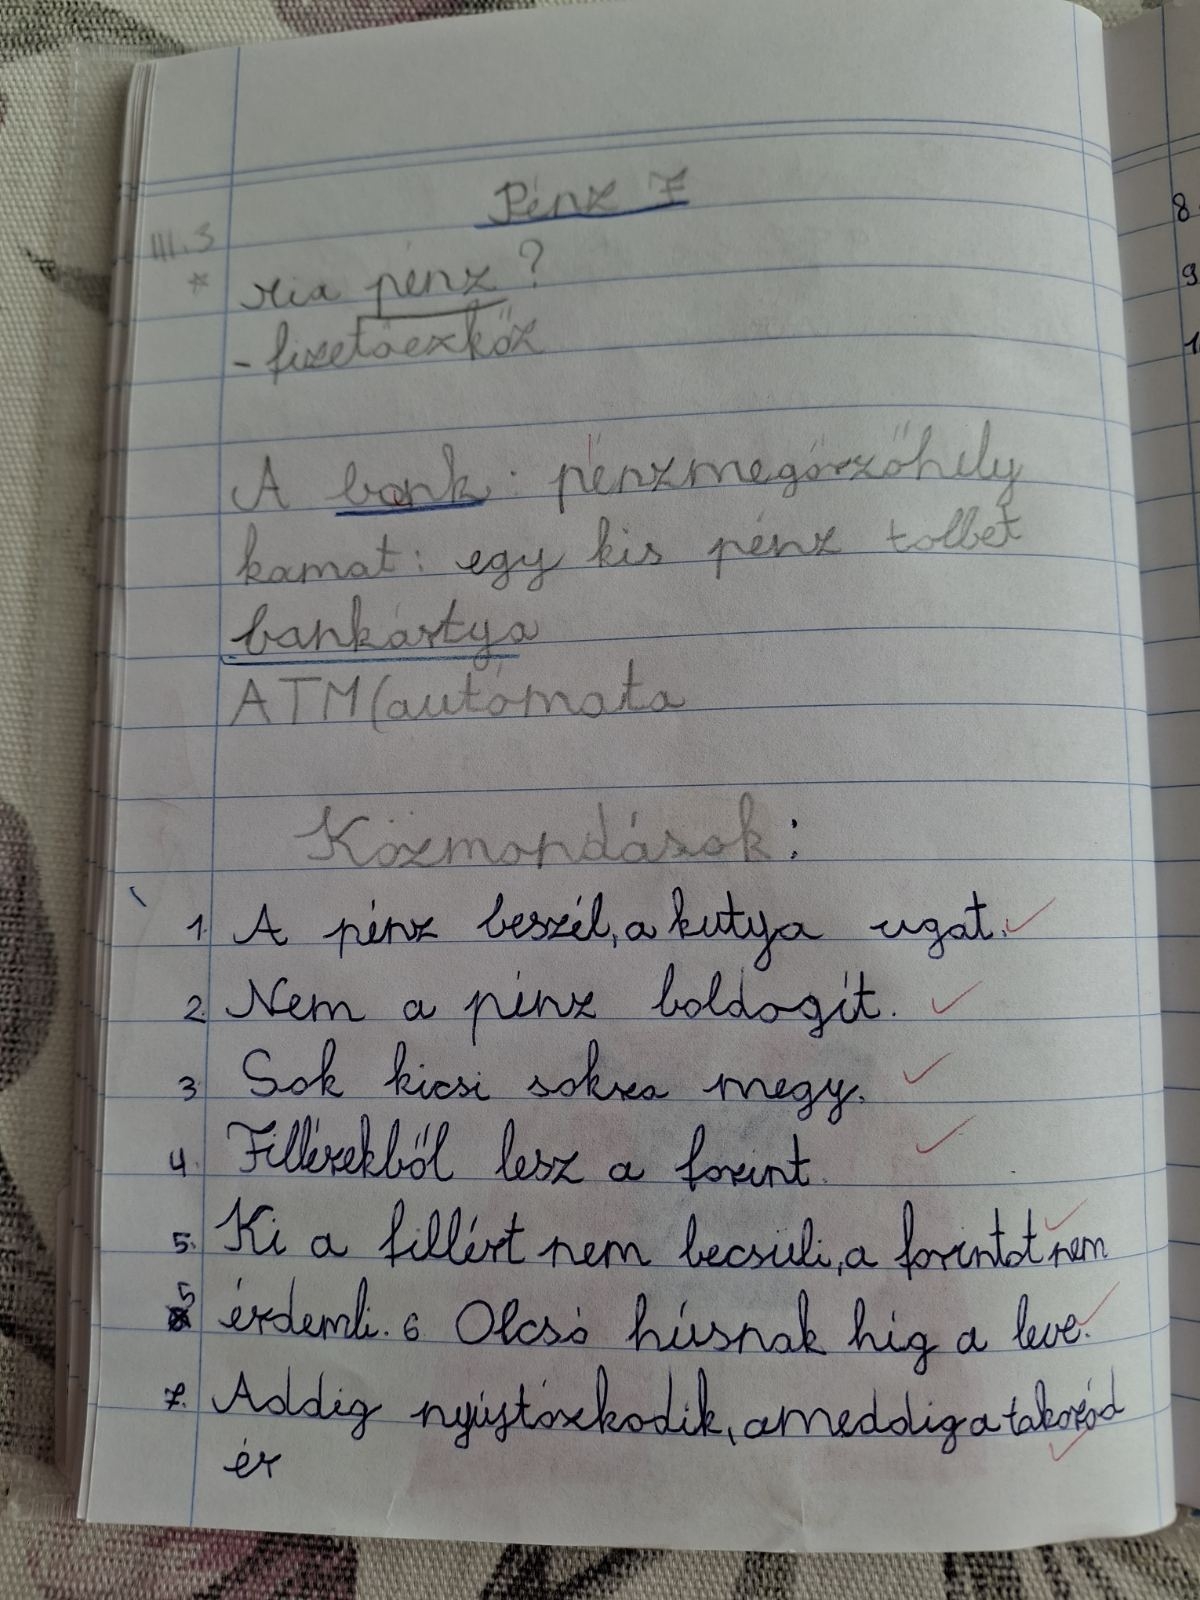 Pénz 7
III.3
* Mi a pénz?
- fizetőeszköz
A bank: pénzmegőrzőhely
kamat: egy kis pénz tölbet
bankártya
ATM(autómata
Közmondások:
1. A pénz beszél, a kutya ugat.
2. Nem a pénz boldogít.
3. Sok kicsi sokra megy.
4. Fillérekből lesz a forint.
5. Ki a fillért nem becsüli, a forintot nem
5 érdemli. 6. Olcsó húsnak híg a leve.
7. Addig nyújtózkodik, ameddig a takaród
ér
8.
9.
1